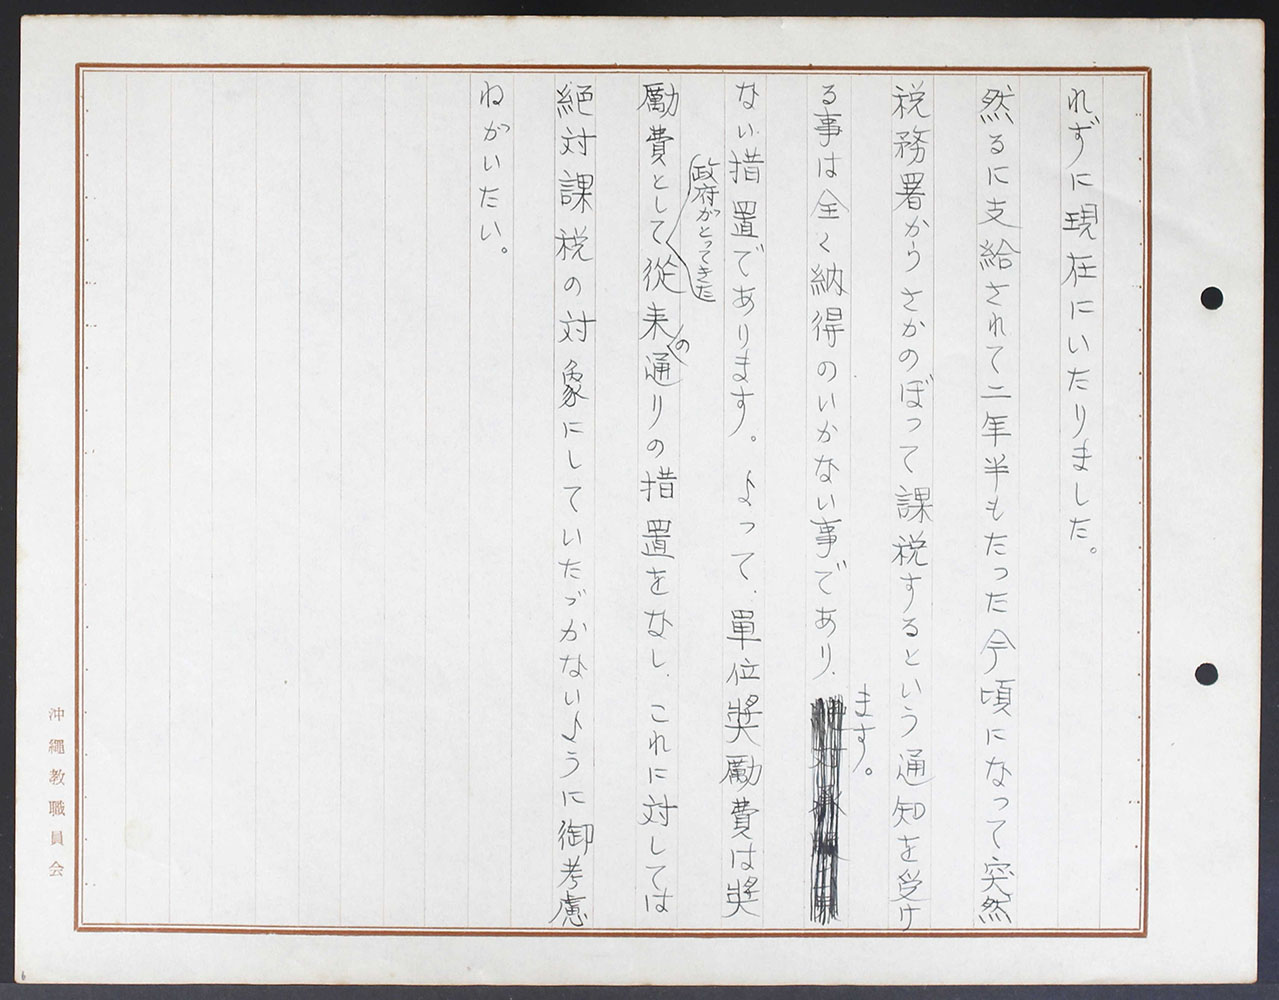 れずに現在にいたりました。
然るに支給されて二年半もたった今頃になって突然
税務署からさかのぼって課税するという通知を受け
る事は全く納得のいかない事であり、
ます。
ない措置であります。よって、單位奬励費は奬
政府がとってきた
励費として從来通りの措置をなし、これに対しては
の
絶対課税の対象にしていたゞかないように御考慮
ねがいたい。
沖繩教職員会